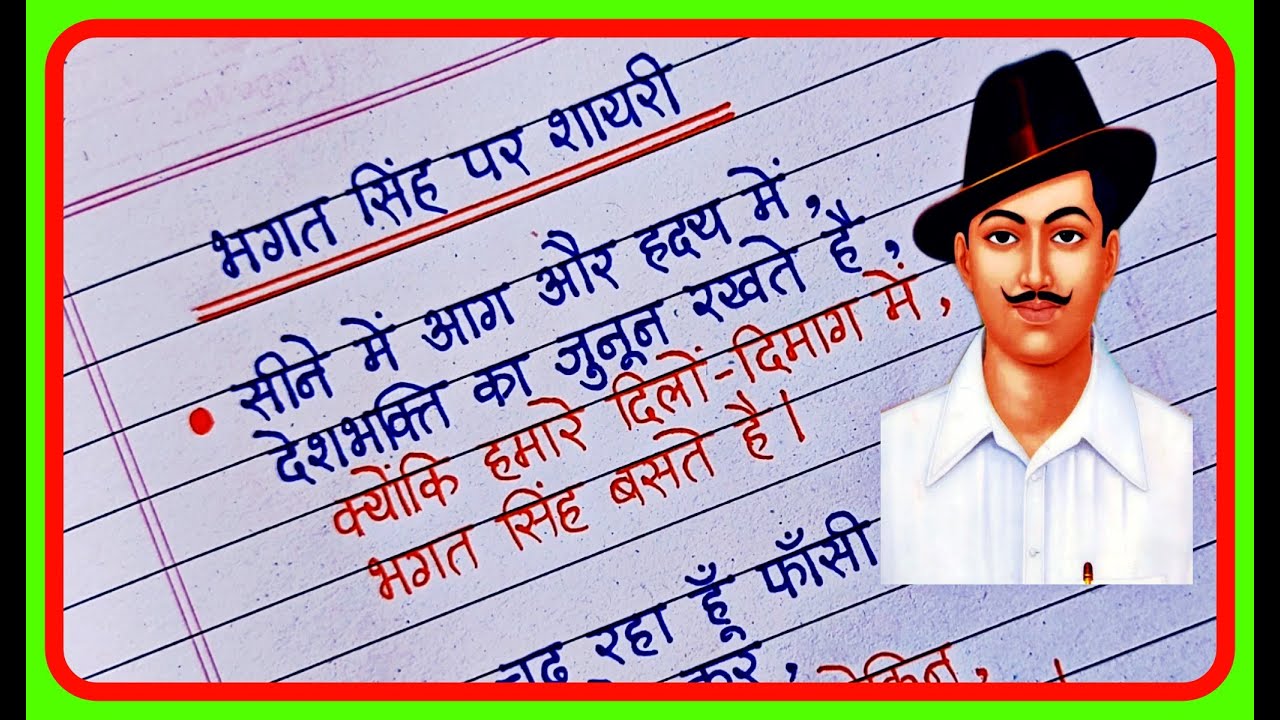 भगत सिंह पर शायरी
सीने में आग और ह्रदय में,
देशभक्ति का जुनून रखते है,
क्योंकि हमारे दिलों-दिमाग में,
भगत सिंह बसते है।
रहा हूँ फाँसी